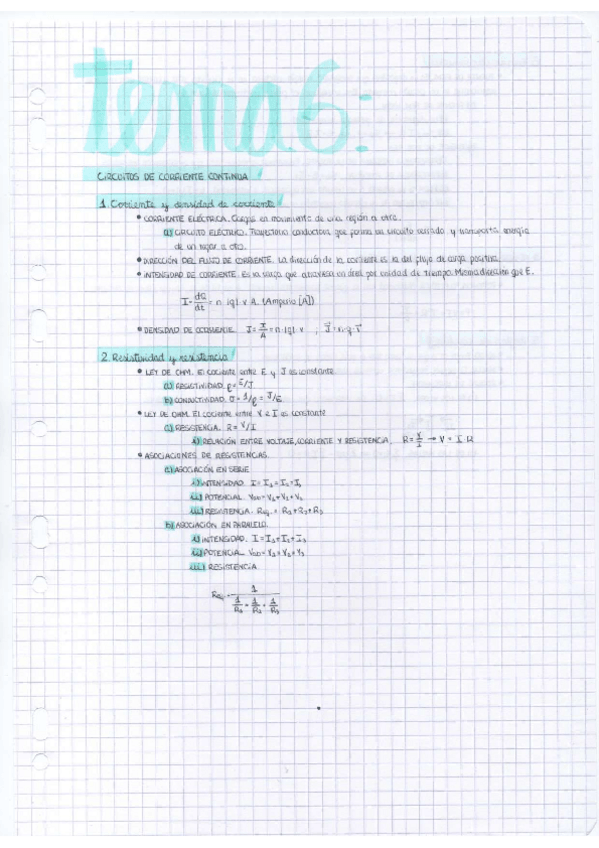 tema 6:
CIRCUITOS DE CORRIENTE CONTINUA
1. Corriente y densidad de corriente
• CORRIENTE ELÉCTRICA. Cargas en movimiento de una región a otra.
a) CIRCUITO ELÉCTRICO. Trayectoria conductora que forma un circuito cerrado y transporta energía
de un lugar a otro.
• DIRECCIÓN DEL FLUJO DE CORRIENTE. La dirección de la corriente es la del flujo de carga positiva.
• INTENSIDAD DE CORRIENTE. Es la carga que atraviesa un área por unidad de tiempo. Misma dirección que E.
I = dQ/dt = n·|q|·v·A. (Amperio [A])
• DENSIDAD DE CORRIENTE. J = I/A = n·|q|·v , J⃗ = n·q·v⃗
2. Resistividad y resistencia
• LEY DE OHM. El cociente entre E y J es constante
a) RESISTIVIDAD. ρ = E/J
b) CONDUCTIVIDAD. σ = 1/ρ = J/E
• LEY DE OHM. El cociente entre V e I es constante
c) RESISTENCIA. R = V/I
i) RELACIÓN ENTRE VOLTAJE, CORRIENTE Y RESISTENCIA. R = V/I → V = I·R
• ASOCIACIONES DE RESISTENCIAS.
a) ASOCIACIÓN EN SERIE
i) INTENSIDAD. I = I₁ = I₂ = I₃
ii) POTENCIAL
iii) RESISTENCIA. Req. = R₁ + R₂ + R₃
b) ASOCIACIÓN EN PARALELO.
i) INTENSIDAD. I = I₁ + I₂ + I₃
ii) POTENCIAL
iii) RESISTENCIA
Req = 1 / (1/R₁ + 1/R₂ + 1/R₃)